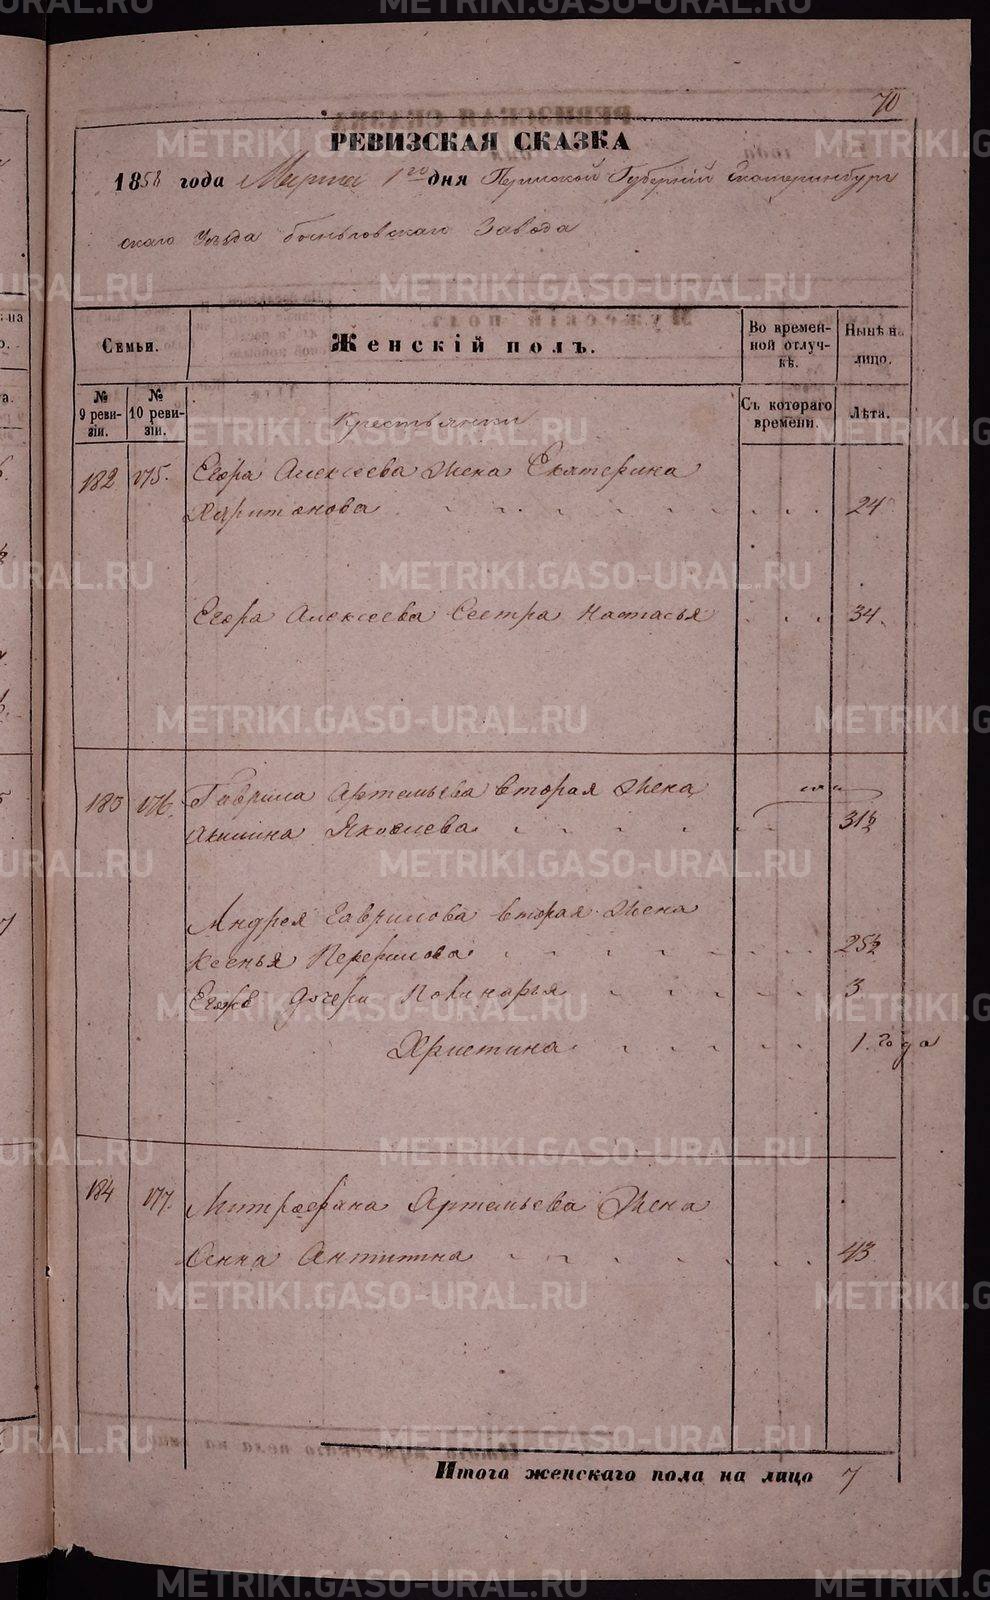 70
РЕВИЗСКАЯ СКАЗКА
1858 года Марта 1го дня Пермской Губерніи Екатеринбург
скаго Уезда Завода
Семьи.
Женскій полъ.
Во времен-
ной отлуч-
кѣ.
Нынѣ на
лицо.
№
9 реви-
зіи.
№
10 реви-
зіи.
Съ котораго
времени.
Лѣта.
Крестьянки
182 175. Егора Алексеева жена Екатерина
Харитонова 24
Егора Алексеева Сестра Настасья 34.
183 176. Гаврила Артемьева вторая жена
Акилина Яковлева 31½
Андрея Гаврилова вторая жена
Ксенья 25½
Егож дочери 3
Христина 1. года
184 177. Митрофана Артемьева жена
Анна Антипина 43
Итого женскаго пола на лицо 7
METRIKI.GASO-URAL.RU